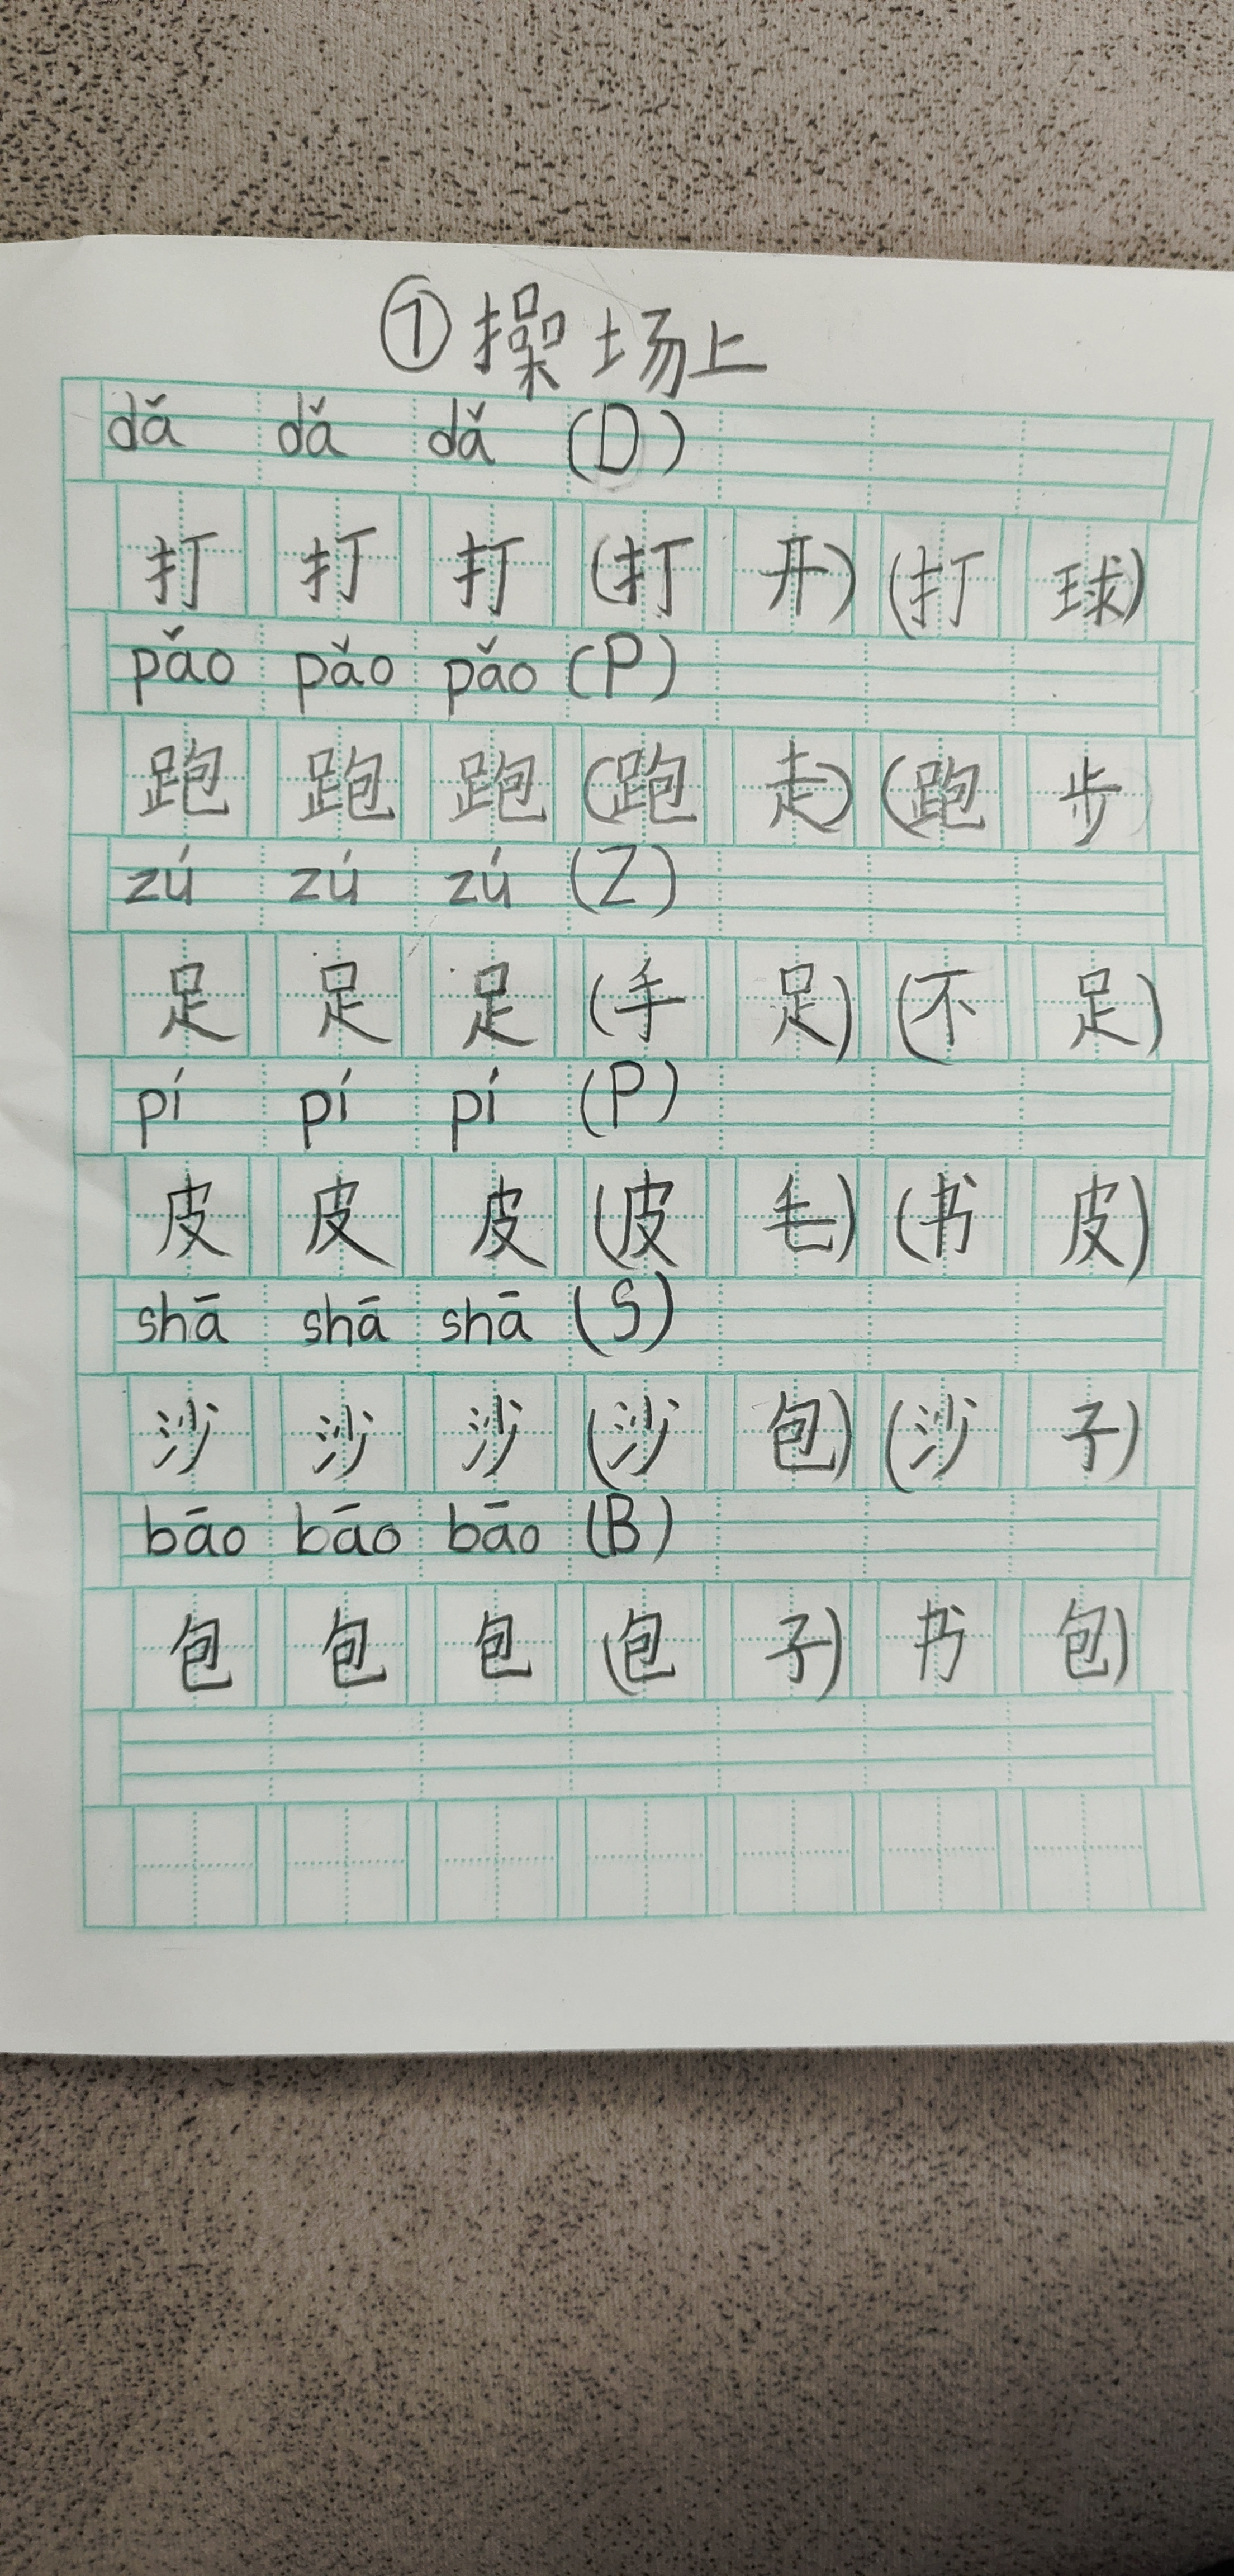 ⑦操场上
dǎ dǎ dǎ (D)
打 打 打 (打 开) (打 球)
pǎo pǎo pǎo (P)
跑 跑 跑 (跑 走) (跑 步)
zú zú zú (Z)
足 足 足 (手 足) (不 足)
pí pí pí (P)
皮 皮 皮 (皮 毛) (书 皮)
shā shā shā (S)
沙 沙 沙 (沙 包) (沙 子)
bāo bāo bāo (B)
包 包 包 (包 子) 书 包)